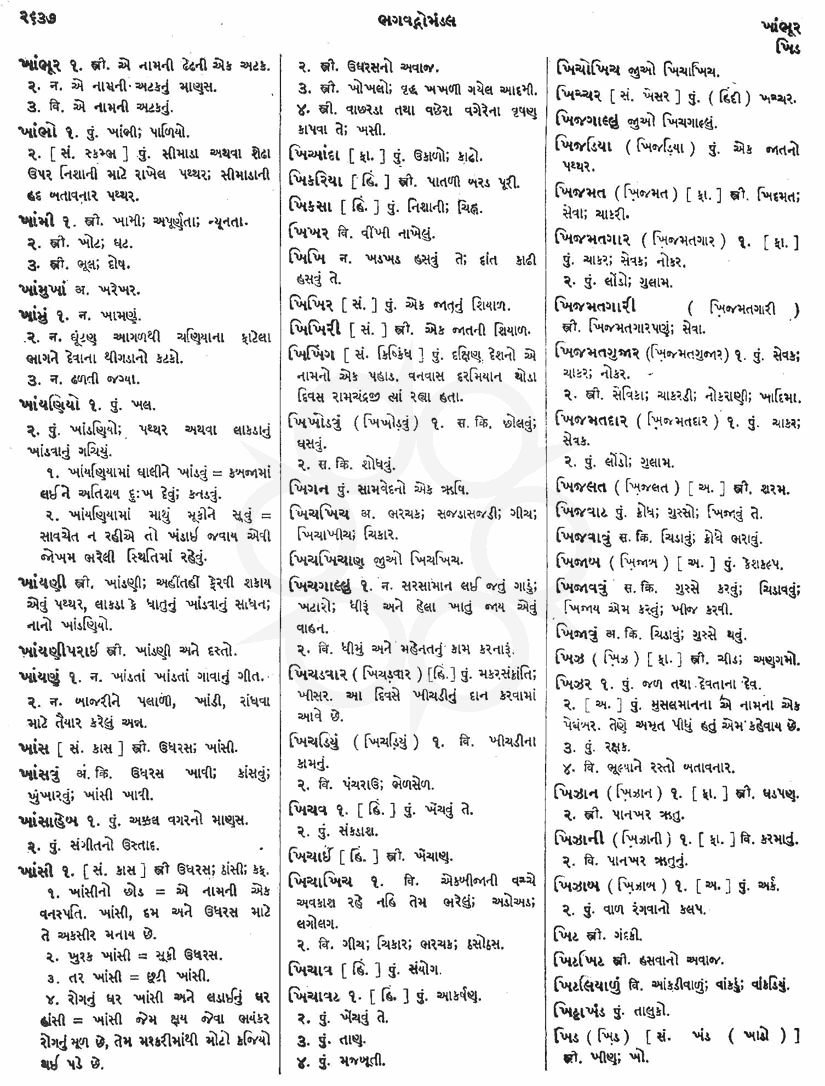 ૨૬૩૭
ભગવદ્ગોમંડલ
ખાંભૂર
ખિડ
ખાંભૂર ૧. સ્ત્રી. એ નામની ઢેઢની એક અટક.
૨. ન. એ નામની અટકનું માણસ.
૩. વિ. એ નામની અટકનું.
ખાંભો ૧. પું. ખાંભી; પાળિયો.
૨. [ સં. સ્કમ્ભ ] પું. સીમાડા અથવા શેઢા
ઉપર નિશાની માટે રાખેલ પથ્થર; સીમાડાની
હદ બતાવનાર પથ્થર.
ખાંમી ૧. સ્ત્રી. ખામી; અપૂર્ણતા; ન્યૂનતા.
૨. સ્ત્રી. ખોટ; ઘટ.
૩. સ્ત્રી. ભૂલ; દોષ.
ખાંમુખાં અ. ખરેખર.
ખાંમું ૧. ન. ખામણું.
૨. ન. ઘૂંટણ આગળથી ચણિયાના ફાટેલા
ભાગને દેવાના થીગડાનો કટકો.
૩. ન. ઢળતી જગ્યા.
ખાંયણિયો ૧. પું. ખલ.
૨. પું. ખાંડણિયો; પથ્થર અથવા લાકડાનું
ખાંડવાનું ગચિયું.
૧. ખાંયણિયામાં ઘાલીને ખાંડવું = કબજામાં
લઈને અતિશય દુઃખ દેવું; કનડવું.
૨. ખાંયણિયામાં માથું મૂકીને સૂવું =
સાવચેત ન રહીએ તો ખંડાઈ જવાય એવી
જોખમ ભરેલી સ્થિતિમાં રહેવું.
ખાંયણી સ્ત્રી. ખાંડણી; અહીંતહીં ફેરવી શકાય
એવું પથ્થર, લાકડા કે ધાતુનું ખાંડવાનું સાધન;
નાનો ખાંડણિયો.
ખાંયણીપરાઈ સ્ત્રી. ખાંડણી અને દસ્તો.
ખાંયણું ૧. ન. ખાંડતાં ખાંડતાં ગાવાનું ગીત.
૨. ન. બાજરીને પલાળી, ખાંડી, રાંધવા
માટે તૈયાર કરેલું અન્ન.
ખાંસ [ સં. કાસ ] સ્ત્રી. ઉધરસ; ખાંસી.
ખાંસવું અ. ક્રિ. ઉધરસ ખાવી; કાંસવું;
ખુંખારવું; ખાંસી ખાવી.
ખાંસાહેબ ૧. પું. અક્કલ વગરનો માણસ.
૨. પું. સંગીતનો ઉસ્તાદ.
ખાંસી ૧. [ સં. કાસ ] સ્ત્રી ઉધરસ; ઠાંસી; કફ.
૧. ખાંસીનો છોડ = એ નામની એક
વનસ્પતિ. ખાંસી, દમ અને ઉધરસ માટે
તે અકસીર મનાય છે.
૨. ખુરક ખાંસી = સૂકી ઉધરસ.
૩. તર ખાંસી = છૂટી ખાંસી.
૪. રોગનું ઘર ખાંસી અને લડાઈનું ઘર
હાંસી = ખાંસી જેમ ક્ષય જેવા ભયંકર
રોગનું મૂળ છે, તેમ મશ્કરીમાંથી મોટો કજિયો
થઈ પડે છે.
૨. સ્ત્રી. ઉધરસનો અવાજ.
૩. સ્ત્રી. ખોખલો; વૃદ્ધ ખખળી ગયેલ આદમી.
૪. સ્ત્રી. વાછરડા તથા વછેરા વગેરેના વૃષણ
કાપવા તે; ખસી.
ખિઆંદા [ ફા. ] પું. ઉકાળો; કાઢો.
ખિકરિયા [ હિં. ] સ્ત્રી. પાતળી બરડ પૂરી.
ખિકસા [ હિં. ] પું. નિશાની; ચિહ્ન.
ખિખર વિ. વીંખી નાખેલું.
ખિખિ ન. ખડખડ હસવું તે; દાંત કાઢી
હસવું તે.
ખિખિર [ સં. ] પું. એક જાતનું શિયાળ.
ખિખિરી [ સં. ] સ્ત્રી. એક જાતની શિયાળ.
ખિખિંગ [ સં. કિષ્કિંધ ] પું. દક્ષિણ દેશનો એ
નામનો એક પહાડ. વનવાસ દરમિયાન થોડા
દિવસ રામચંદ્રજી ત્યાં રહ્યા હતા.
ખિખોડવું ( ખિખોડ઼વું ) ૧. સ. ક્રિ. છોલવું;
ઘસવું.
૨. સ. ક્રિ. શોધવું.
ખિગન પું. સામવેદનો એક ઋષિ.
ખિચખિચ અ. ભરચક; સજડાસજડી; ગીચ;
ખિચાખીચ; ચિકાર.
ખિચખિચાણ જુઓ ખિચખિચ.
ખિચગાલ્લું ૧. ન. સરસામાન લઈ જતું ગાડું;
ખટારો; ધીરૂં અને હેલા ખાતું જાય એવું
વાહન.
૨. વિ. ધીમું અને મહેનતનું કામ કરનારૂં.
ખિચડવાર ( ખિચડ઼વાર ) [હિં.] પું. મકરસંક્રાંતિ;
ખીસર. આ દિવસે ખીચડીનું દાન કરવામાં
આવે છે.
ખિચડિયું ( ખિચડ઼િયું ) ૧. વિ. ખીચડીના
કામનું.
૨. વિ. પંચરાઉ; ભેળસેળ.
ખિચવ ૧. [ હિં. ] પું. ખેંચવું તે.
૨. પું. સંકડાશ.
ખિચાઈ [ હિં. ] સ્ત્રી. ખેંચાણ.
ખિચાખિચ ૧. વિ. એકબીજાની વચ્ચે
અવકાશ રહે નહિ તેમ ભરેલું; અડોઅડ;
લગોલગ.
૨. વિ. ગીચ; ચિકાર; ભરચક; ઠસોઠસ.
ખિચાવ [ હિં. ] પું. સંયોગ.
ખિચાવટ ૧. [ હિં. ] પું. આકર્ષણ.
૨. પું. ખેંચવું તે.
૩. પું. તાણ.
૪. પું. મજબૂતી.
ખિચોખિચ જુઓ ખિચાખિચ.
ખિચ્ચર [ સં. ખેસર ] પું. ( હિંદી ) ખચ્ચર.
ખિજગાલ્લું જુઓ ખિચગાલ્લું.
ખિજડિયા ( ખિજડ઼િયા ) પું. એક જાતનો
પથ્થર.
ખિજમત ( ખ઼િજમત ) [ ફા. ] સ્ત્રી. ખિદમત;
સેવા; ચાકરી.
ખિજમતગાર ( ખ઼િજમતગાર ) ૧. [ ફા. ]
પું. ચાકર; સેવક; નોકર.
૨. પું. લોંડો; ગુલામ.
ખિજમતગારી ( ખ઼િજમતગારી )
સ્ત્રી. ખિજમતગારપણું; સેવા.
ખિજમતગુજાર (ખ઼િજમતગુજાર) ૧. પું. સેવક;
ચાકર; નોકર.
૨. સ્ત્રી. સેવિકા; ચાકરડી; નોકરાણી; ખાદિમા.
ખિજમતદાર ( ખ઼િજમતદાર ) ૧. પું. ચાકર;
સેવક.
૨. પું. લોંડો; ગુલામ.
ખિજલત ( ખ઼િજલત ) [ અ. ] સ્ત્રી. શરમ.
ખિજવાટ પું. ક્રોધ; ગુસ્સો; ખિજવું તે.
ખિજવાવું સ. ક્રિ. ચિડાવું; ક્રોધે ભરાવું.
ખિજાબ ( ખ઼િજાબ ) [ અ. ] પું. કેશકલ્પ.
ખિજાવવું સ. ક્રિ. ગુસ્સે કરવું; ચિડાવવું;
ખિજાય એમ કરવું; ખીજ કરવી.
ખિજાવું અ. ક્રિ. ચિડાવું; ગુસ્સે થવું.
ખિઝ ( ખ઼િઝ ) [ ફા. ] સ્ત્રી. ચીડ; અણગમો.
ખિઝર ૧. પું. જળ તથા દેવતાના દેવ.
૨. [ અ. ] પું. મુસલમાનના એ નામના એક
પેઘંબર. તેણે અમૃત પીધું હતું એમ કહેવાય છે.
૩. પું. રક્ષક.
૪. વિ. ભૂલ્યાને રસ્તો બતાવનાર.
ખિઝાન ( ખ઼િઝાન ) ૧. [ ફા. ] સ્ત્રી. ઘડપણ.
૨. સ્ત્રી. પાનખર ઋતુ.
ખિઝાની ( ખ઼િઝાની ) ૧. [ ફા. ] વિ. કરમાતું.
૨. વિ. પાનખર ઋતુનું.
ખિઝાબ ( ખ઼િઝાબ ) ૧. [ અ. ] પું. અર્ક.
૨. પું. વાળ રંગવાનો કલપ.
ખિટ સ્ત્રી. ગંદકી.
ખિટખિટ સ્ત્રી. હસવાનો અવાજ.
ખિટલિયાળું વિ. આંકડીવાળું; વાંકડું; વાંકડિયું.
ખિટ્ટાખંડ પું. તાલુકો.
ખિડ ( ખિડ઼ ) [ સં. ખંડ ( ખાડો ) ]
સ્ત્રી. ખીણ; ખો.